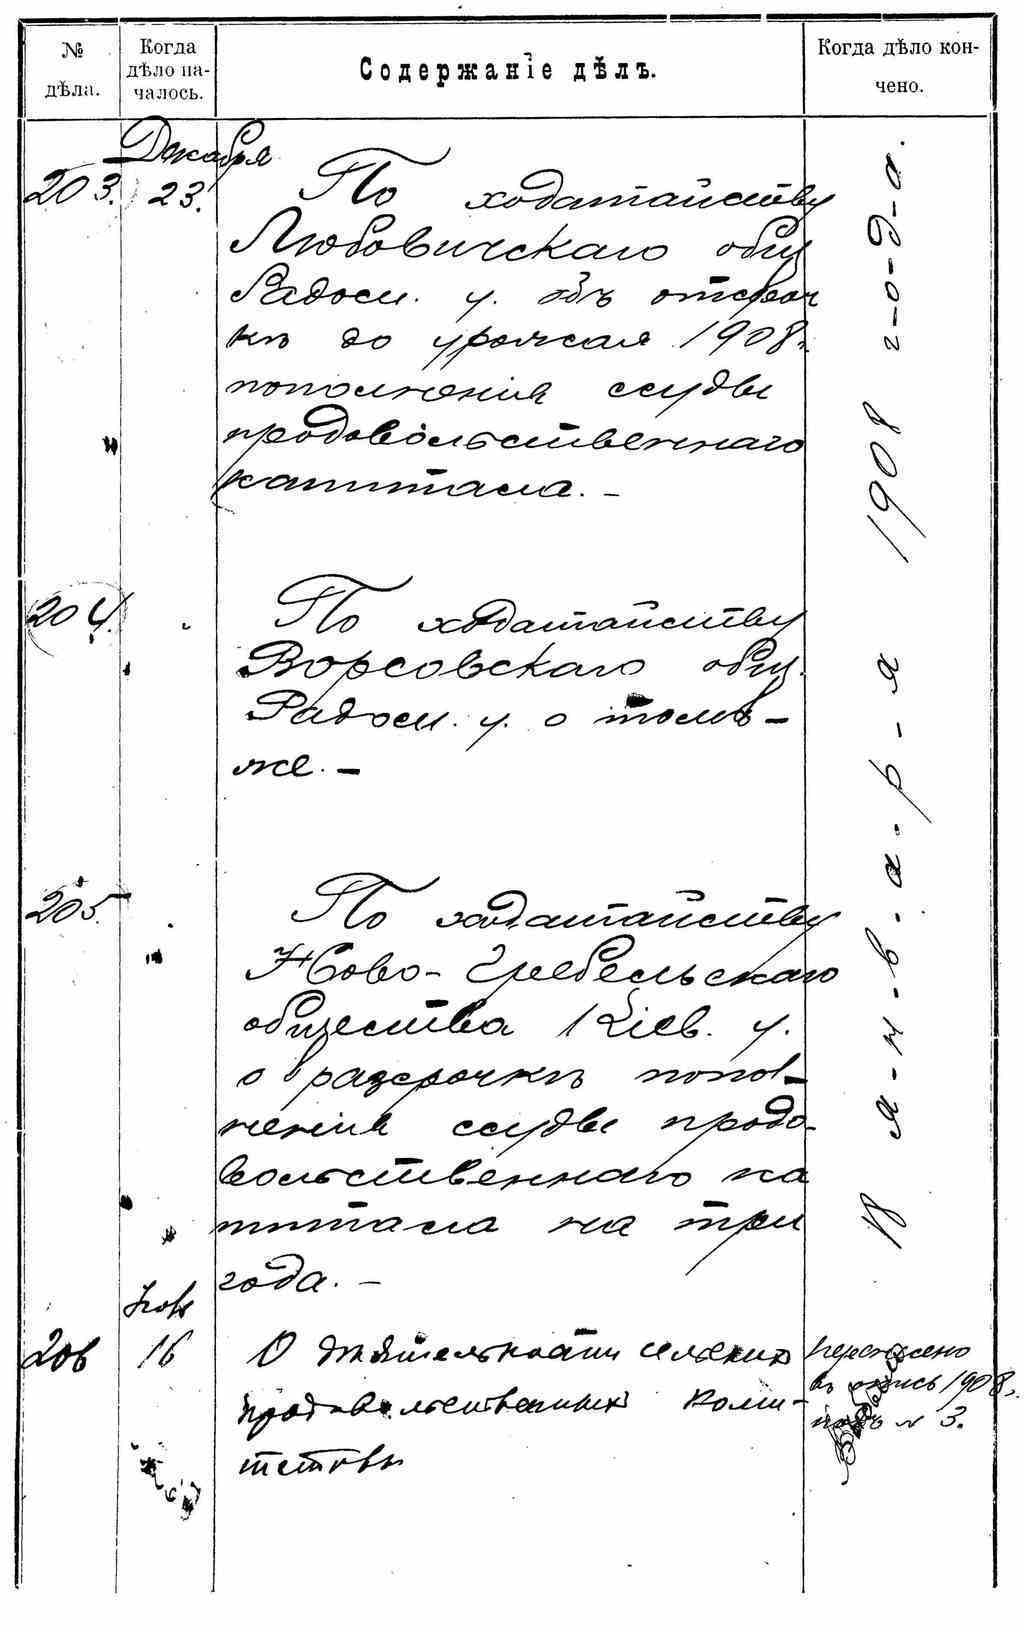 № дѣла.
Когда дѣло на-
чалось.
Содержаніе дѣлъ.
Когда дѣло кон-
чено.
Декабря
203. 23. По ходатайству
Любовичскаго общ
Радом. у. объ отсроч
кѣ до урожая 1908 г.
пополненія ссуды
продовольственнаго
капитала. –
204. По ходатайству
Ворсовскаго общ.
Радом. у. о томъ–
же. –
205. По ходатайству
Ново-Гребельскаго
общества Кіев. у.
о разсрочкѣ попол–
ненія ссуды продо-
вольственнаго ка
питала на три
года. –
18 я-н-в-а-р-я 1908 г-о-д-а.
Нояб
206 16 О дѣятельности сельскихъ
продовольственныхъ коми-
тетовъ
перенесено
въ опись 1908 г.
подъ № 3.